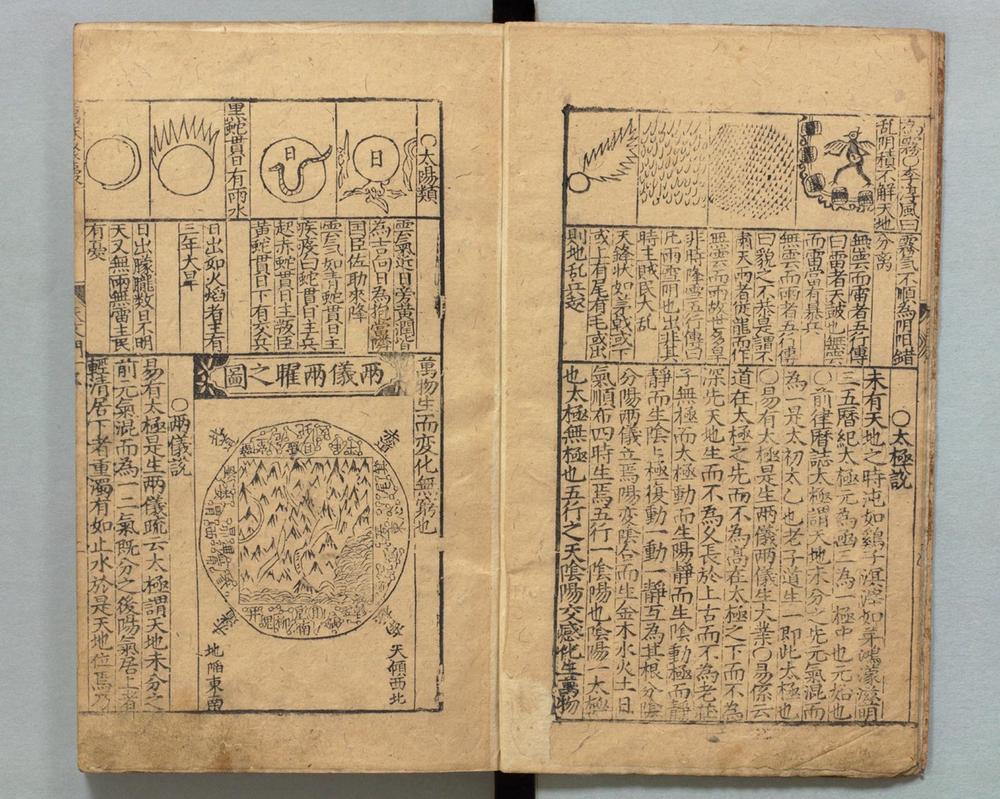 李淳風曰霧氣不順為阴阳錯
乱阴積不解天地分离
無雲而雷者五行傳
曰雷者天鼓也無雲
而雷當有暴兵
無雲而雨者五行傳
曰貌之不恭是謂不
肅天雨者從龍而作
無雲而雨故世多旱
非時降雪五行傳曰
凡雨雪阴也出非其
時主賊民大乱
天鋒狀如矛戟或下
或上有尾有毛或出
則地乱兵起
○太極說
未有天地之時沌如鷄子溟涬如芽鴻濛澄明
三五曆紀大極元為凾三為一極中也元始也
○前律曆誌太極謂天地未分之先元氣混而
為一是太初太乙也老子道生一即此太極也
○易有太極是生兩儀兩儀生大業○易係云
道在太極之先而不為高在太極之下而不為
深先天地生而不為久長於上古而不為老莊
子無極而大極動而生陽靜而生陰動極而靜
靜而生陰極復動一動一靜互為其根分陰
分陽兩儀立焉陽変陰合而生金木水火土日
氣順布四時生焉五行一陰陽也陰陽一太極
也太極無極也五行之天陰陽交感化生萬物
○太陽類
日
日
黑蛇貫日有雨水
雲氣近日旁黃潤皆
為吉向日為抱當隣
国臣佐助來降
雲气如青蛇貫日主
疾疫白蛇貫日主兵
起赤蛇貫日主叛臣
黃蛇貫日下有交兵
日出如火焰者主有
三年大旱
日出朦朧数日不明
天又無雨無雷主民
有憂
萬物生而变化無窮也
兩儀兩曜之圖
天傾西北
地陷東南
○兩儀說
易有太極是生兩儀疏云太極謂天地未分之
前元氣混而為一二氣既分之後陽氣居上者
輕清居下者重濁有如止水於是天地位焉乃